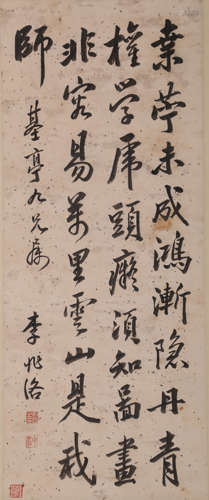 菜薴未成鴻漸隱丹青
權學虎頭癡須知圖畫
非容易萬里雲山是我
師
墓亭九兄屬
李兆洛